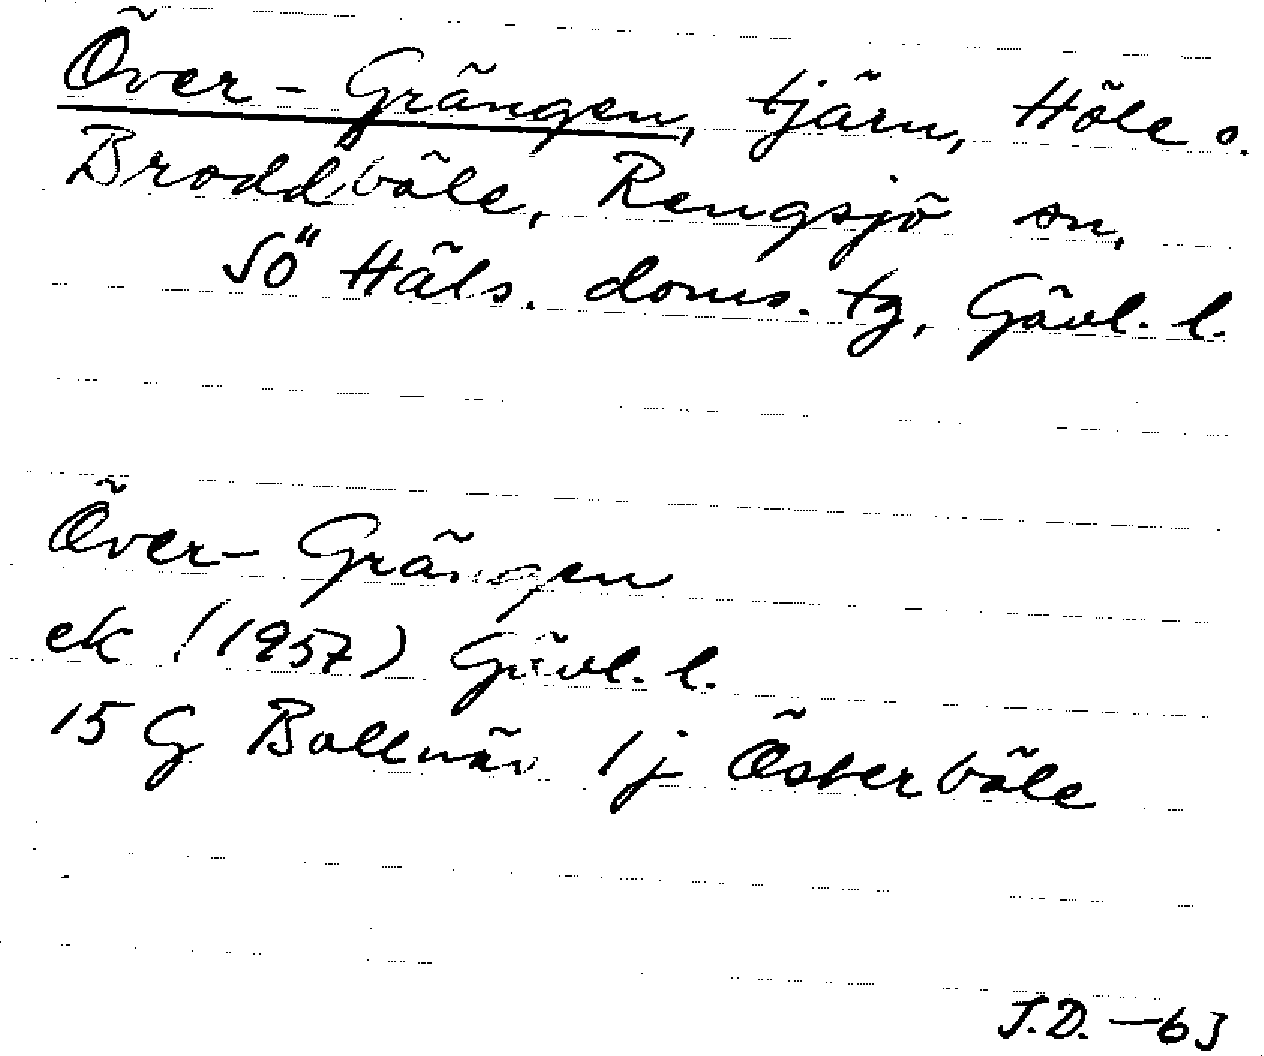 Över-Grängen, tjärn, Höle o.
Broddböle, Rengsjö sn,
Sö Häls. doms. tg, Gävl. l.
Över-Grängen
ek ! (1957) Gävl. l.
15 G Bollnäs 1 j Österböle
J.D. -63